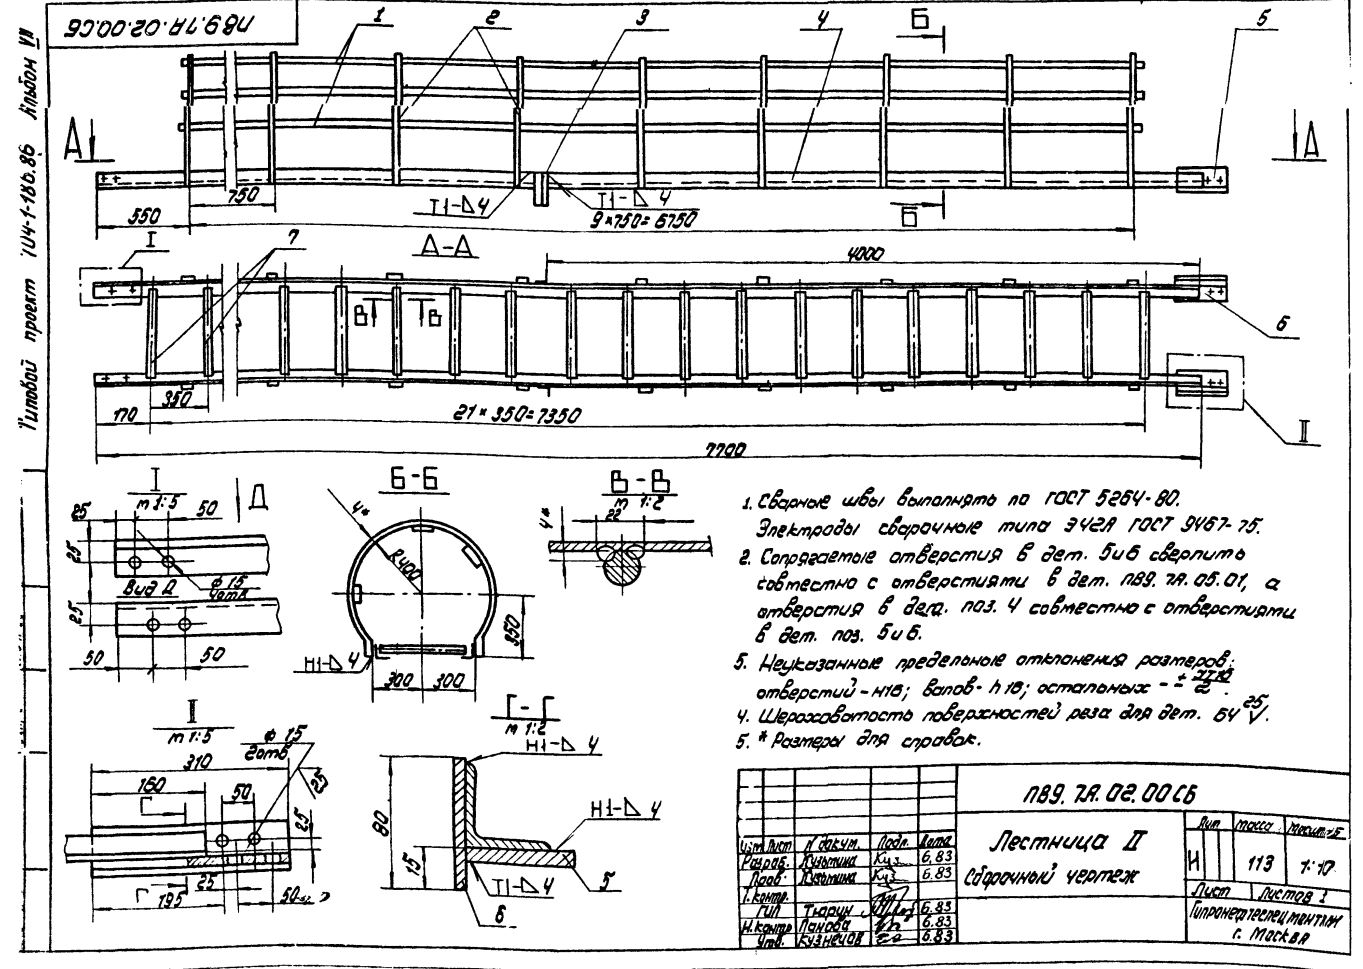 П89.7А.02.00СБ
Типовой проект 704-1-166.86 Альбом VII
1
2
3
4
Б
5
А
А
750
550
Т1-◺4
Т1-◺4
9×750=6750
Б
I
7
А-А
4000
В
В
6
350
170
21×350=7350
II
7700
I
м 1:5
Д
25
50
25
ф15
4отв
Вид Д
25
50
50
Б-Б
4*
R400
350
Н1-◺4
300
300
В-В
м 1:2
22
4*
II
м 1:5
ф15
2отв
310
25
160
50
Г
25
Г
25
195
50
Г-Г
м 1:2
Н1-◺4
80
Н1-◺4
15
Т1-◺4
5
6
1. Сварные швы выполнять по ГОСТ 5264-80.
Электроды сварочные типа Э42А ГОСТ 9467-75.
2. Сопрягаемые отверстия в дет. 5и6 сверлить
совместно с отверстиями в дет. П89.7А.05.01, а
отверстия в дет. поз. 4 совместно с отверстиями
в дет. поз. 5и6.
3. Неуказанные предельные отклонения размеров:
отверстий-Н16; валов-h16; остальных
4. Шероховатость поверхностей реза для дет. БЧ 25√.
5. * Размеры для справок.
П89.7А.02.00СБ
Лестница II
Сборочный чертеж
Лит. Масса Масштаб
И 113 1:10
Лист Листов 1
Гипронефтеспецмонтаж
г. Москва
Изм Лист N докум. Подп. Дата
Разраб. Кузьмина Куз 6.83
Пров. Кузьмина Куз 6.83
Т.контр.
ГИП Тюрин 6.83
Н.контр Панова 6.83
Утв. Кузнецов 6.83